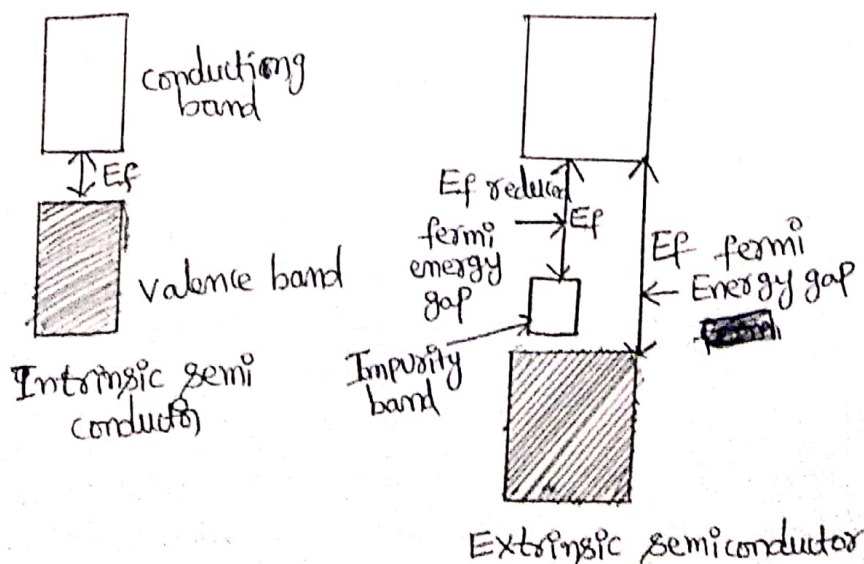 conductiong
band
Ef
Valence band
Intrinsic semi
conductor
Ef reduced
fermi
energy
gap
Ef
Impurity
band
Ef fermi
Energy gap
Extrinsic semiconductor